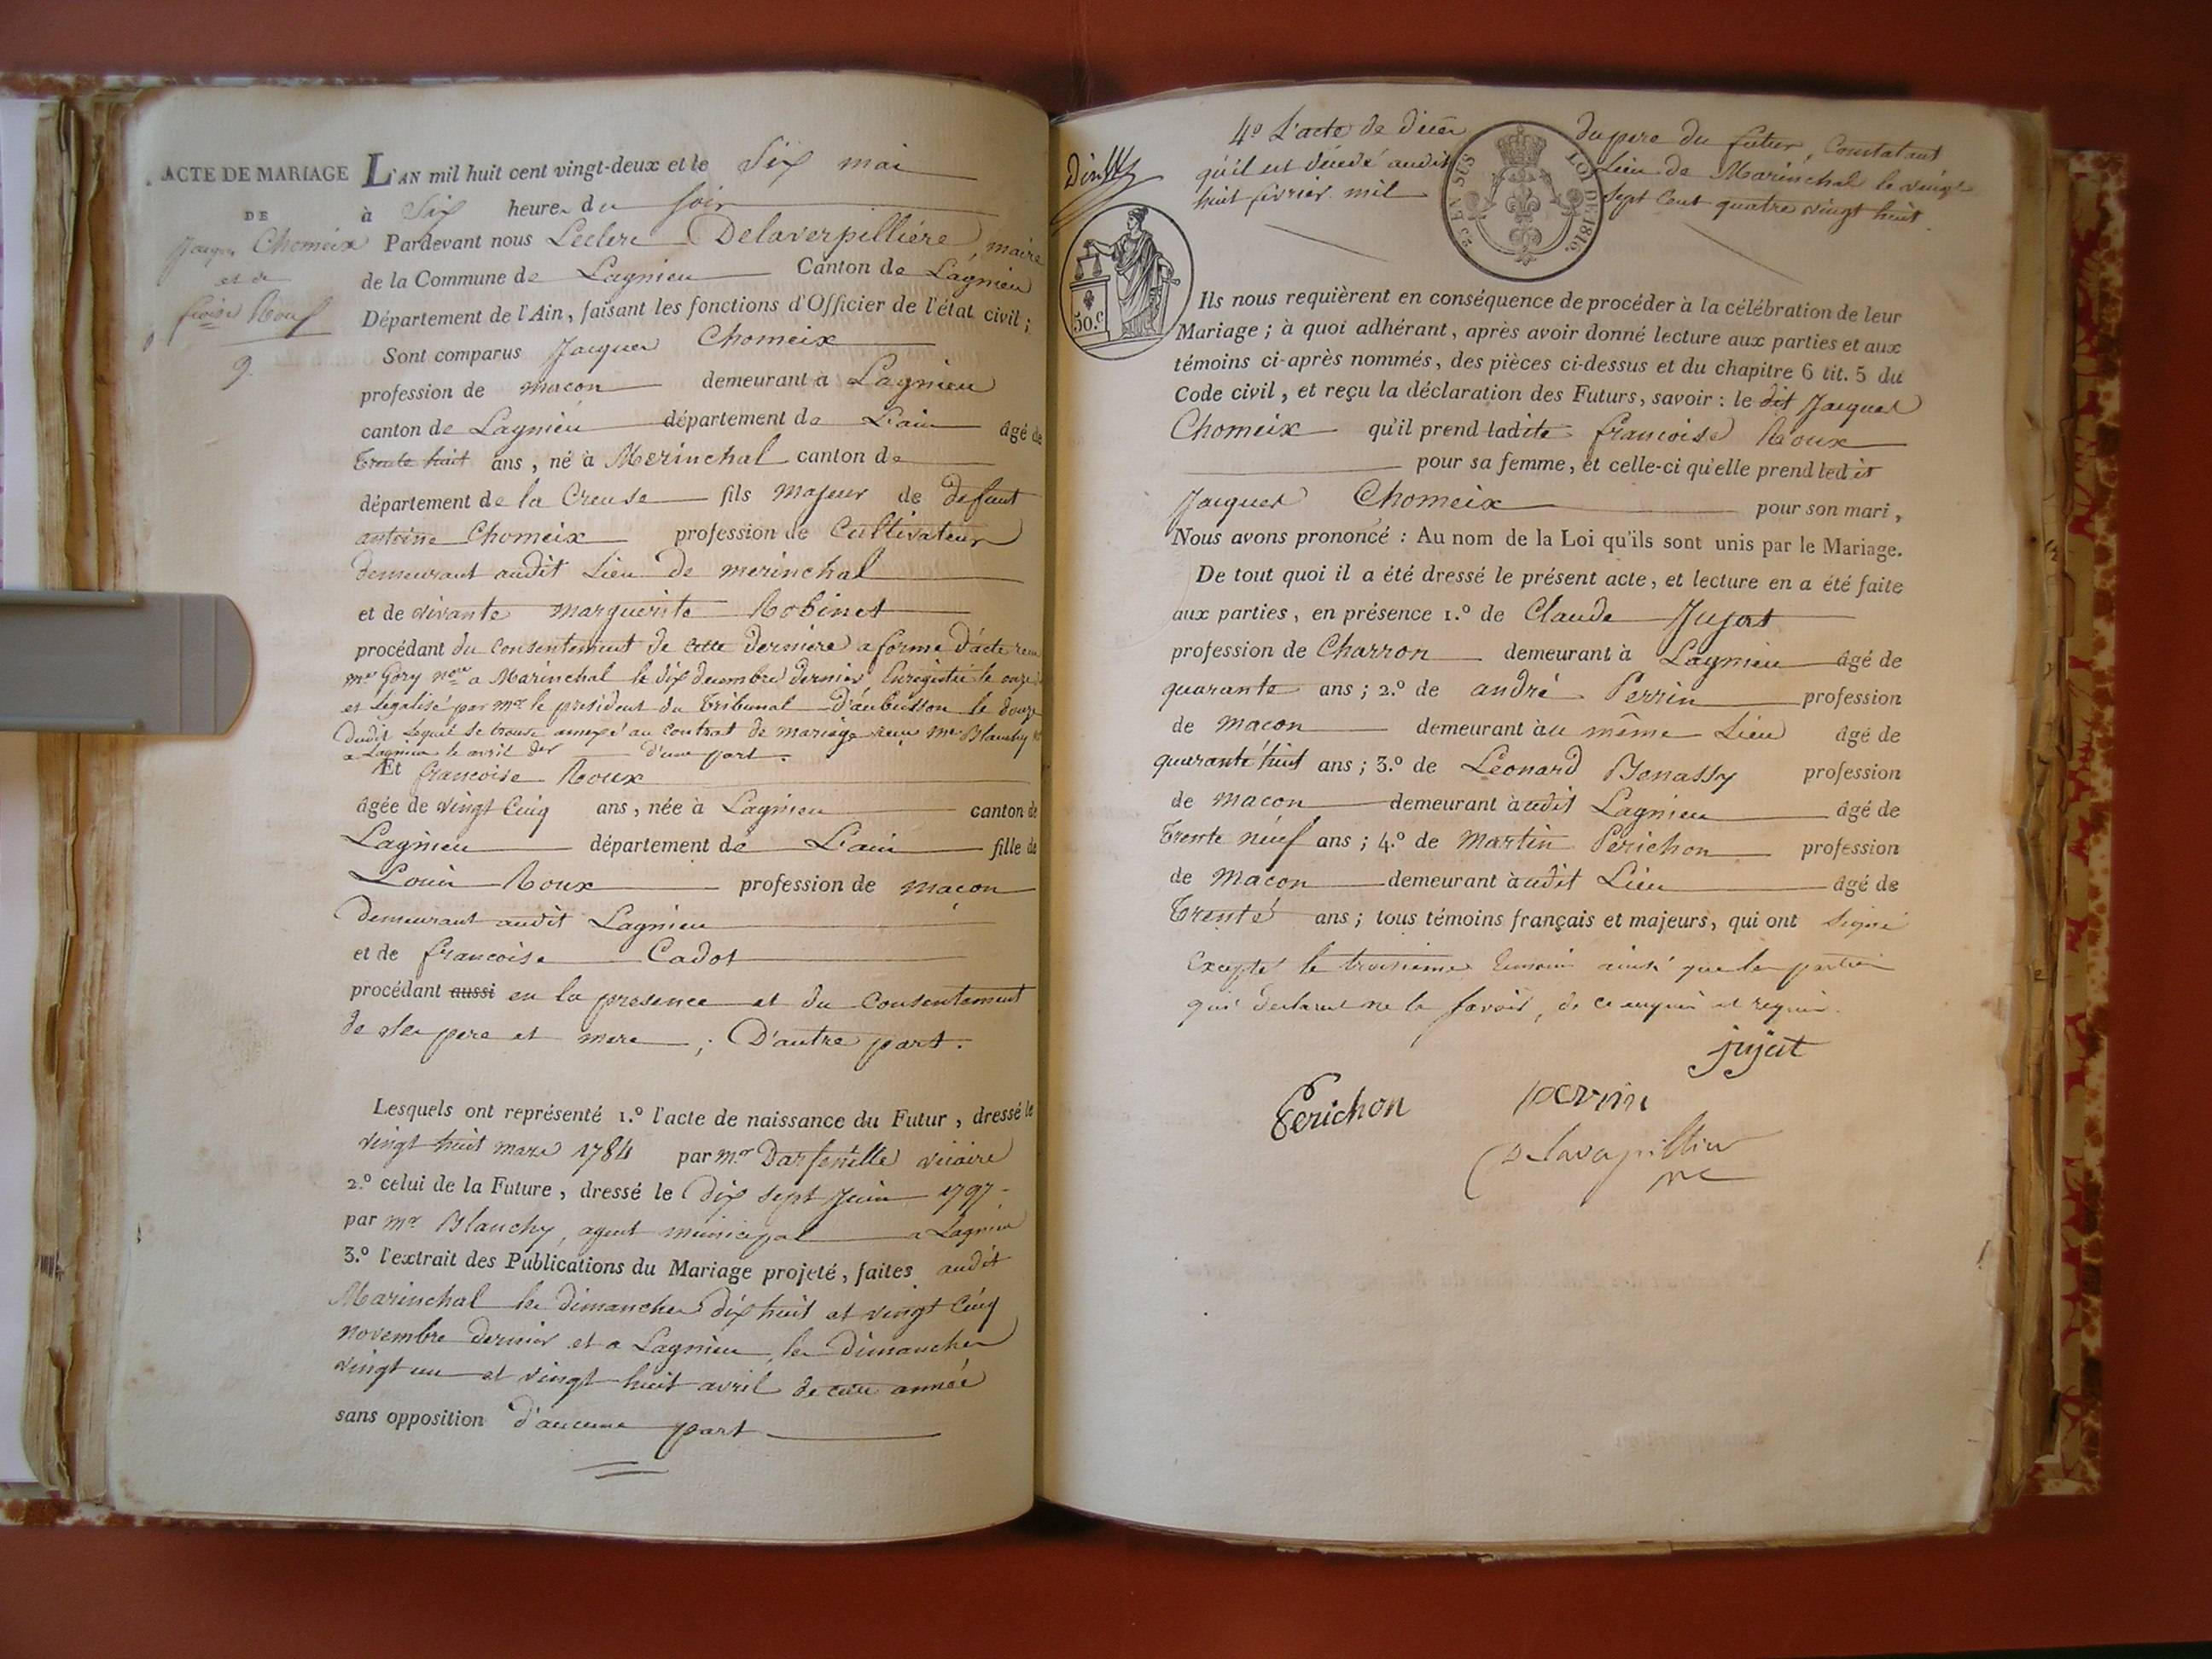 ACTE DE MARIAGE
DE
Jacques Chomeix
et de
froise Roux
9.
L'AN mil huit cent vingt-deux et le Six mai
à Six heures du soir
Pardevant nous Leclerc Delaverpillière, maire
de la Commune de Lagnieu Canton de Lagnieu
Département de l'Ain, faisant les fonctions d'Officier de l'état civil;
Sont comparus Jacques Chomeix
profession de macon demeurant à Lagnieu
canton de Lagnieu département de L'ain âgé de
trente huit ans, né à Merinchal canton de
département de la Creuse fils majeur de defunt
antoine Chomeix profession de Cultivateur
demeurant audit Lieu de merinchal
et de vivante marguerite Robinet
procédant du consentement de cette derniere a forme d'acte recu
mr Gory nore a Marinchal le dix decembre dernier, Enregistré le onze
et légalisé par mr le president du tribunal D'aubusson le douze
dudit lequel se trouve annexé au contrat de mariage recu me Blanchy
a Lagnieu le avril der d'une part.
Et francoise Roux
âgée de vingt Cinq ans, née à Lagnieu canton de
Lagnieu département de L'ain fille de
Louis Roux profession de macon
demeurant audit Lagnieu
et de francoise Cadot
procédant aussi en la presence et du consentement
de ses pere et mere ; D'autre part.
Lesquels ont représenté 1.º l'acte de naissance du Futur, dressé le
vingt huit mars 1784 par mr Darfeuille vicaire
2.º celui de la Future, dressé le dix sept Juin 1797
par mr Blanchy, agent municipal a Lagnieu
3.º l'extrait des Publications du Mariage projeté, faites audit
Marinchal les dimanches dix huit et vingt Cinq
novembre dernier et a Lagnieu les Dimanches
vingt un et vingt huit avril de cette année
sans opposition d'aucune part
4º L'acte de décès du pere du futur, Constatant
qu'il est décédé audit Lieu de Marinchal le vingt
huit fevrier mil Sept Cent quatre vingt huit.
25 EN SUS LOI DE 1816.
50.c
Ils nous requièrent en conséquence de procéder à la célébration de leur
Mariage; à quoi adhérant, après avoir donné lecture aux parties et aux
témoins ci-après nommés, des pièces ci-dessus et du chapitre 6 tit. 5 du
Code civil, et reçu la déclaration des Futurs, savoir: le dit Jacques
Chomeix qu'il prend ladite francoise Roux
pour sa femme, et celle-ci qu'elle prend ledit
Jacques Chomeix pour son mari,
Nous avons prononcé: Au nom de la Loi qu'ils sont unis par le Mariage.
De tout quoi il a été dressé le présent acte, et lecture en a été faite
aux parties, en présence 1.º de Claude Jujat
profession de Charron demeurant à Lagnieu âgé de
quarante ans; 2.º de andré Perrin profession
de macon demeurant au même Lieu âgé de
quarante huit ans; 3.º de Leonard Bonassy profession
de macon demeurant audit Lagnieu âgé de
trente neuf ans; 4.º de Martin Perichon profession
de macon demeurant audit Lieu âgé de
trente ans; tous témoins français et majeurs, qui ont signé
Excepté le troisieme temoin ainsi que les parties
qui declarent ne le savoir, de ce enquis et requis.
jujat
Perichon
perrin
Delaverpilliere